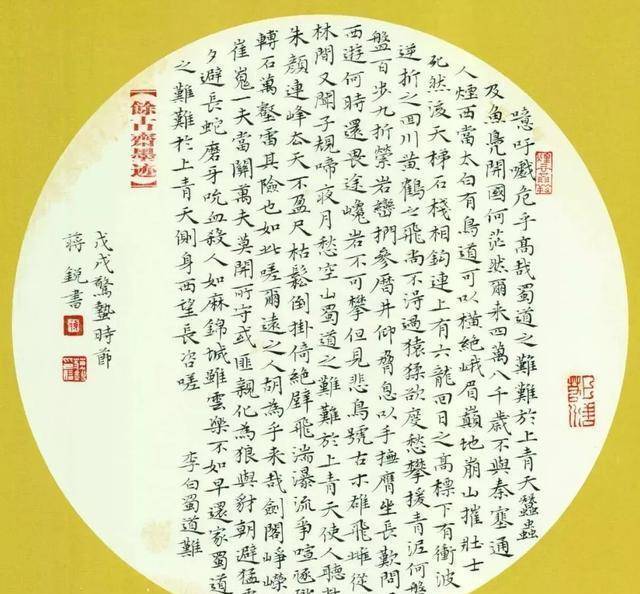 噫吁戲危乎高哉蜀道之難難於上青天蠶
及魚鳧開國何茫然爾来四萬八千歲不與秦塞通
人煙西當太白有鳥道可以橫絕峨眉巔地崩山摧壯士
死然後天梯石棧相鉤連上有六龍回日之高標下有衝波
逆折之回川黃鶴之飛尚不得過猿猱欲度愁攀援青泥何盤
盤百步九折縈岩巒捫參曆井仰脅息以手撫膺坐長歎問
西遊何時還畏途巉岩不可攀但見悲鳥號古木雄飛雌從
林間又聞子規啼夜月愁空山蜀道之難難於上青天使人聽
朱顏連峰去天不盈尺枯鬆倒掛倚絕壁飛湍瀑流爭喧
轉石萬壑雷其險也如此嗟爾遠之人胡為乎来哉劍閣崢嶸
崔嵬一夫當關萬夫莫開所守或匪親化為狼與豺朝避猛
夕避長蛇磨牙吮血殺人如麻錦城雖雲樂不如早還家蜀道
之難難於上青天側身西望長咨嗟 李白蜀道難
【餘古齋墨迹】
戊戌驚蟄時節
蔣銳書